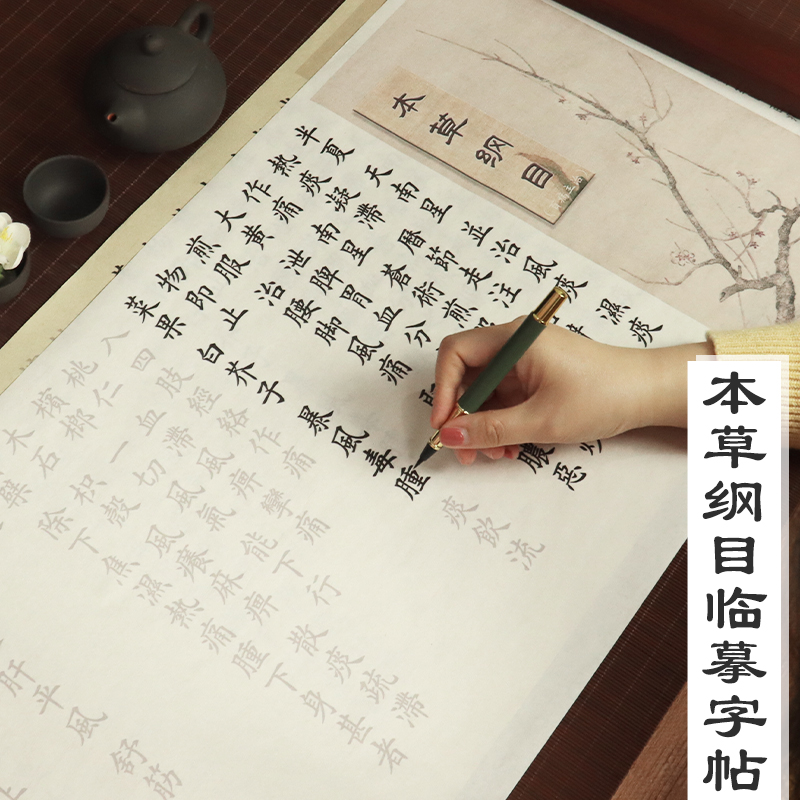 本草纲目
半夏 天南星 並治風痰 濕痰
熱痰凝滯 曆節走注
作痛 南星 蒼術 煎
大黃 泄脾胃血分
煎服 治腰脚風痛
物即止 膿 惡
菜果
白芥子 暴風毒腫
痰飲流
入四肢經絡作痛
桃仁 血滯風痺攣痛
檳榔 一切風氣 能下行
木石 枳殼 風癢麻痺 散痰疏滯
檗 除下焦濕熱痛腫 下身甚者
肝平風 舒筋
上
本草纲目临摹字帖